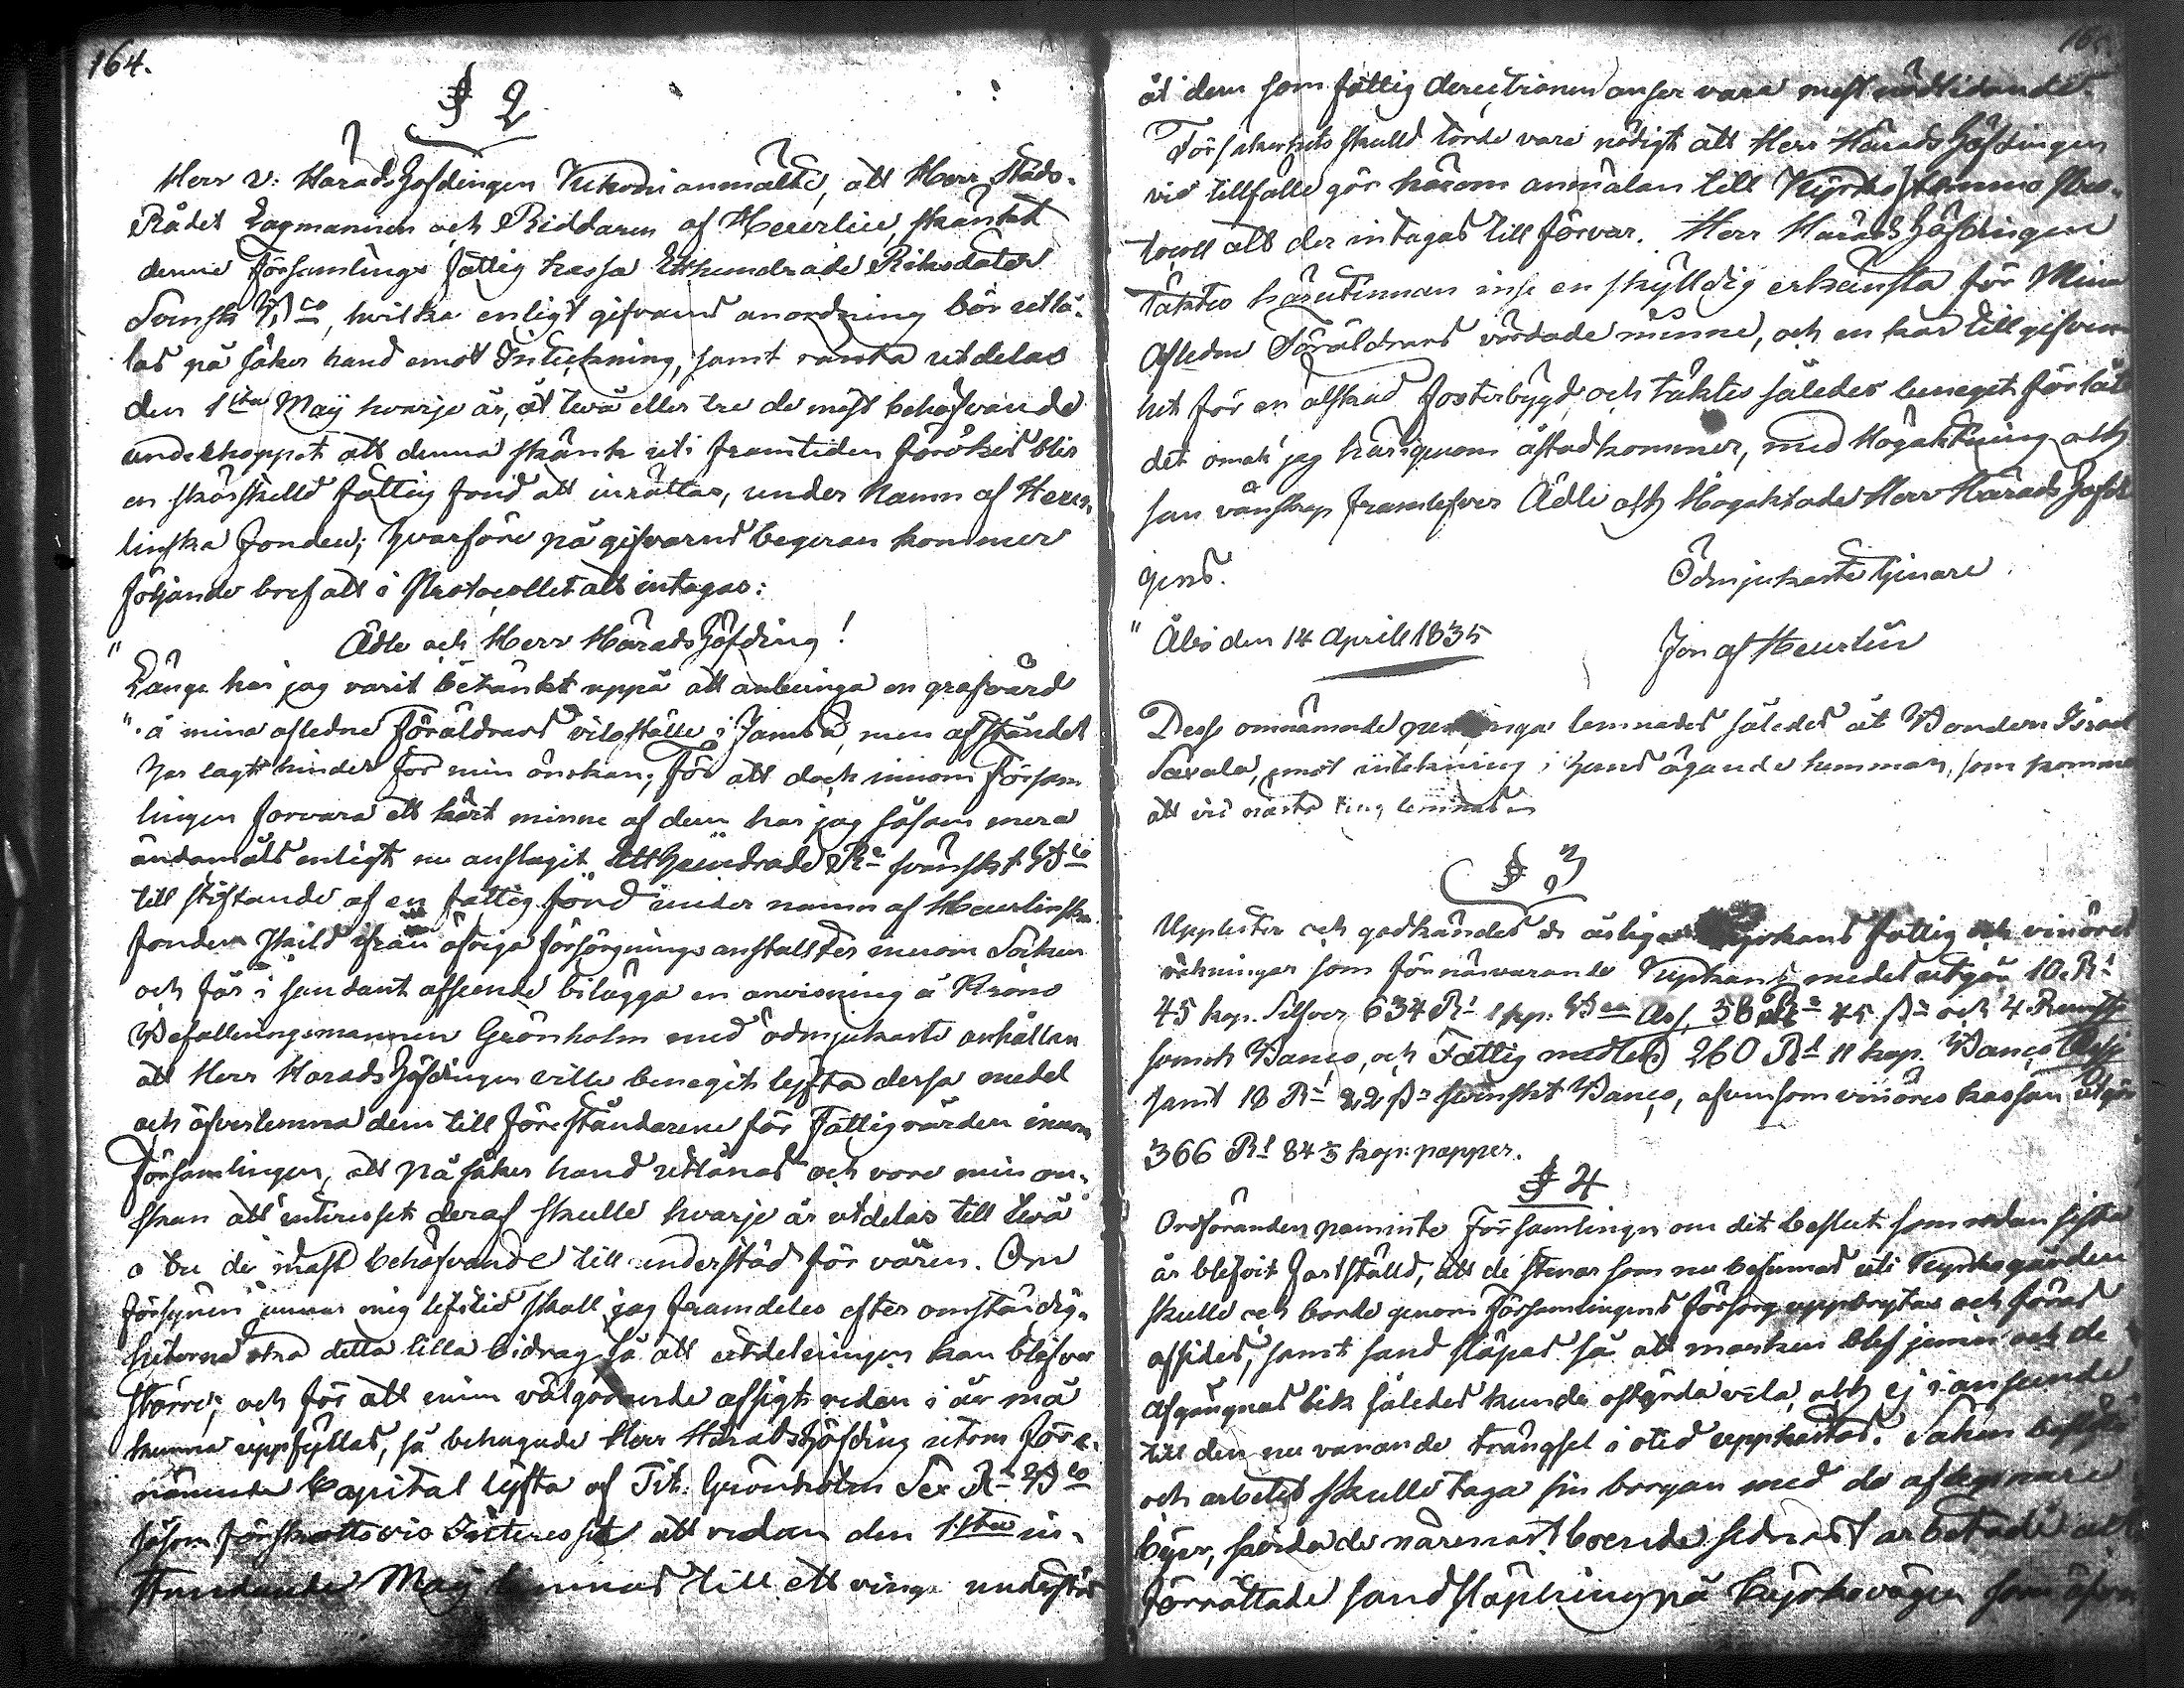 164.
§ 2
Herr v: Härads Höfdingen anmälte, att Herr Stads-
Rådet Lagmannen och Riddaren af Heurlin, skänkt
denne Församlings fattig kassa Etthundrade Riksdaler
Svensk Bco, hvilka enligt gifvarens anordning bör utlå-
las på säker hand emot Inteckning, samt ränta utdelas
den 1sta Maÿ hvarje år, åt tvä eller tre de mest behöfvande
under hoppet att denna skänk uti framtiden förökes blir
en särskilld fattig fond att inrättas, under Namn af Heur-
linska fonden; hvarföre på gifvarens begäran kommer
följande bref att i Protocollet att intagas:
" Ädle och Herr Härads Höfding!
Länge har jag varit betänkt uppå att anbringa en grafvård
" å mina afledne Föräldrars hviloställe i Jamsä, men afståndet
har lagt hinder för min önskan; För att dock innom Försam
lingen förvara ett kärt minne af dem har jag såsom mera
ändamåls enligt nu anslagit Etthundrade Rd svenskt Bco
till stiftande af en fattig fond under namn af Heurlinska
fonden skild ifrån öfriga försörgnings anstalter inom Socken
och får i sandant afseende bilägga en anvisning å Krono
Befallningsmannen Grönholm med ödmjukaste anhållan
att Herr Härads Höfdingen ville benegit lyfta dessa medel
och öfverlemna dem till föreståndarene för Fattigvården innom
Församlingen, att på säker hand utlånas och vore min ön-
skan att interesset deraf skulle hvarje år utdelas till tvä
a tre de mäst behöfvande till understöd för våren. Om
försynen unnar mig lifstid skall jag framdeles efter omständig-
heterna öka detta lilla bidrag så att utdelningen kan blifva
större; och för att min välgörande afsigt redan i år må
kunna uppfyllas, så behagade Herr Härads Höfding utom före-
nämnda Capital lyfta af Tit: Grönholm Sex Rd Bco
såsom förskottsvis Interesset att redan den 1sta in-
stundande Maÿ lemnas till ett ringa understöd
åt dem som fattig directionen anser vara mest nödlidande.
För säkerhets skulld torde vara nödigt att Herr Härads Höfdingen
vid tillfälle gör härom anmälan till Kyrko stemmo Pro-
tocoll att der intagas till förvar. Herr Härads Höfdingen
täktes härutinnan inse en skylldig erkänsla för Mina
Afledne Föräldrars vördade minne, och en kär tillgifven
het för en älskad fosterbygd och täktes således beneget förlåt
det omak jag härigenom åstadkommer, med Högaktning och
san vänskap framlefver Ädle och Högaktade Herr Härads Höfd
gens.
Ödmjukaste tjenare.
" Åbo den 14 April 1835
Jon af Heurlin
Desse omnämnde penninga lemnades således åt Bonden Israel
Savala, emot intekning i hans ägande hemman, som komme
att vid nästa ting lemnas
§ 3
Upplästes och godkändes de årliga Kyrkans fattig och vinöres
räkningar som för närvarande Kyrkans medel utgör 10 Rd
45 kop. Silfver 634 Rd 1 kop. Bco Ass, 58 Rd 45 och 4
Banco, och Fattig medlen 260 Rd 11 kop. Banco Ass
samt 18 Rd 22 svenskt Banco, äfvensom vinöres kassan utgör
366 Rd 84 3 kop. papper.
§ 4
Ordföranden påminte Församlingen om det beslut som redan sista
år blefvit fastställd, att de stenar som nu befinnas uti Kyrkogården
skulle och borde genom Församlingens försorg uppbrytas och föras
afsides, samt sand släpas så att marken blef jemn och de
afgångnas lik således kunde ostörda vila, och ej i anseende
till den nu varande trängsel i otid uppkastas. Saken
och arbetet skulle taga sin början med de aflägsnare
byer, de närmast boende sednast arbetade
förrättade sand släpning på Kyrkovägen som